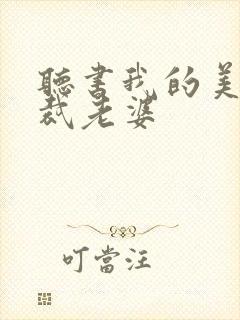 聽書我的美
裁老婆
叮當汪